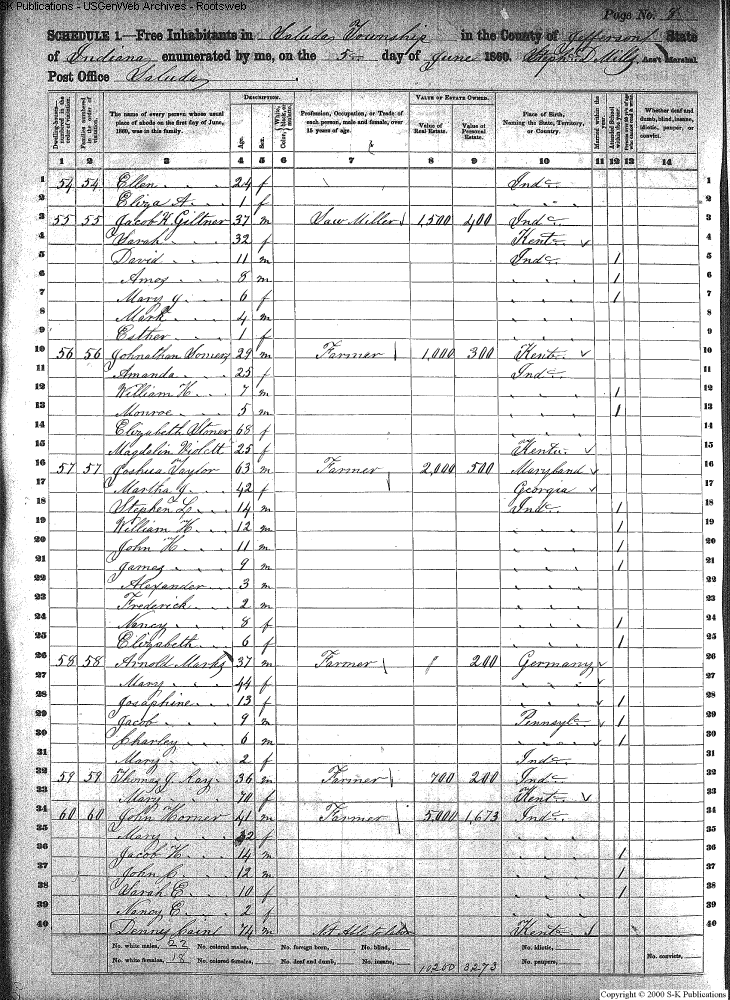 SK Publications - USGenWeb Archives - Rootsweb
Page No. 8
SCHEDULE 1.—Free Inhabitants in Saluda Township in the County of Jefferson State
of Indiana enumerated by me, on the 5 day of June 1860. Ass't Marshal.
Post Office Saluda
DESCRIPTION. VALUE OF ESTATE OWNED.
Dwelling-houses— numbered in the order of visitation. Families numbered in the order of visitation. The name of every person whose usual place of abode on the first day of June, 1860, was in this family. Age. Sex. Color, White, black, or mulatto. Profession, Occupation, or Trade of each person, male and female, over 15 years of age. Value of Real Estate. Value of Personal Estate. Place of Birth, Naming the State, Territory, or Country. Married within the year. Attended School within the year. Whether deaf and dumb, blind, insane, idiotic, pauper, or convict.
1 2 3 4 5 6 7 8 9 10 11 12 13 14
1 54 54 Ellen 24 f Inda 1
2 Eliza A. 1 f " 2
3 55 55 Jacob H Giltner 37 m Saw Miller 1,500 400 Inda 3
4 Sarah 32 f Kent 4
5 David 11 m Inda 1 5
6 Amos 8 m " 1 6
7 Mary J. 6 f " 1 7
8 Mark 4 m " 8
9 Esther 1 f " 9
10 56 56 Johnathan 29 m Farmer 1,000 300 Kent 10
11 Amanda 25 f Inda 11
12 William H. 7 m " 1 12
13 Monroe 5 m " 1 13
14 Elizabeth Stoner 68 f " 14
15 Magdalin Violett 25 f Kent 15
16 57 57 Joshua Taylor 63 m Farmer 2,000 500 Maryland 16
17 Martha J. 42 f Georgia 17
18 Stephen L. 14 m Inda 1 18
19 William H. 12 m " 1 19
20 John H. 11 m " 1 20
21 James 9 m " 1 21
22 Alexander 3 m " 22
23 Frederick 2 m " 23
24 Nancy 8 f " 1 24
25 Elizabeth 6 f " 1 25
26 58 58 Arnold Marks 37 m Farmer 200 Germany 26
27 Mary 44 f " 27
28 Josaphine 13 f " 1 28
29 Jacob 9 m Pennsyla 1 29
30 Charley 6 m " 1 30
31 Mary 2 f Inda 31
32 59 59 Thomas J. Ray 36 m Farmer 700 200 Inda 32
33 Mary 70 f Kent 33
34 60 60 John Horner 41 m Farmer 5,000 1,673 Inda 34
35 Mary 32 f " 35
36 Jacob H. 14 m " 1 36
37 John C. 12 m " 1 37
38 Sarah E. 10 f " 1 38
39 Nancy E. 2 f " 39
40 Denney Cain 74 m Not Able to labor Kent 40
No. white males, 22 No. colored males, No. foreign born, No. blind, No. idiotic,
No. white females, 18 No. colored females, No. deaf and dumb, No. insane, 10200 3273 No. paupers, No. convicts,
Copyright © 2000 S-K Publications